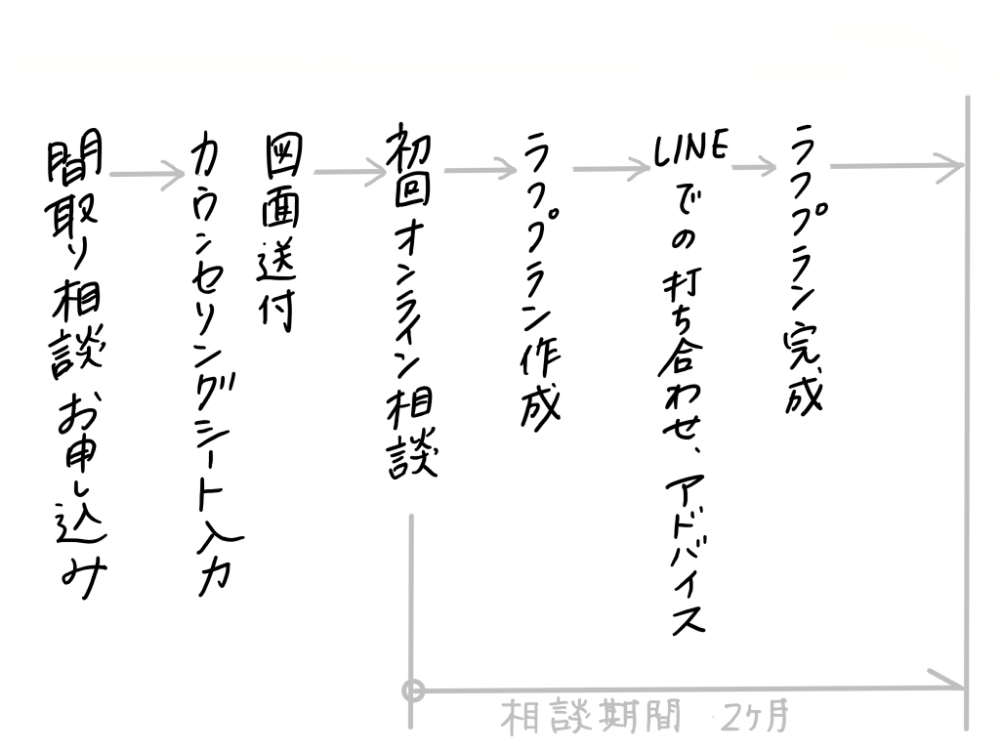 間取り相談お申し込み
カウンセリングシート入力
図面送付
初回オンライン相談
ラフプラン作成
LINEでの打ち合わせ、アドバイス
ラフプラン完成
相談期間 2ヶ月